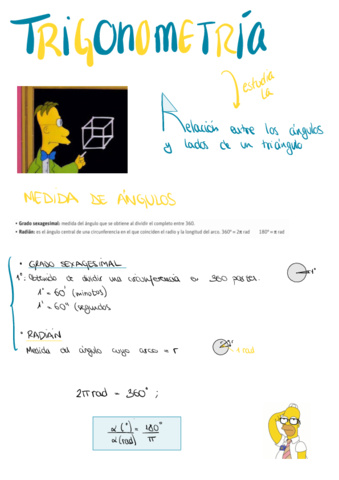 TRIGONOMETRÍA
estudia
la
Relación entre los ángulos
y lados de un triángulo
MEDIDA DE ÁNGULOS
• Grado sexagesimal: medida del ángulo que se obtiene al dividir el completo entre 360.
• Radián: es el ángulo central de una circunferencia en el que coinciden el radio y la longitud del arco. 360º = 2π rad 180º = π rad
• GRADO SEXAGESIMAL
1°: Obtenido de dividir una circunferencia en 360 partes.
1°
1° = 60' (minutos)
1' = 60'' (segundos
• RADIÁN
Medida del ángulo cuyo arco = r
= 1 rad
2π rad = 360° ;
α (°) / α (rad) = 180° / π